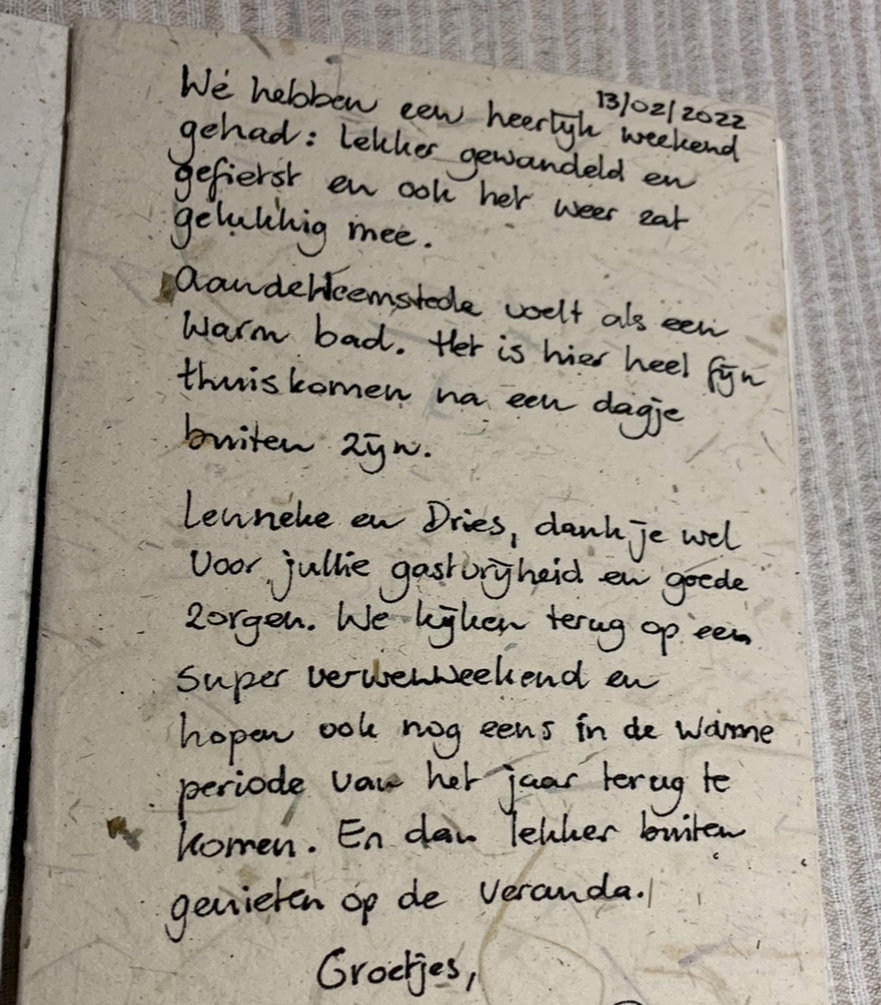 13/02/2022
We hebben een heerlijk weekend
gehad: lekker gewandeld en
gefietst en ook het weer zat
gelukkig mee.
AandeHeemstede voelt als een
warm bad. Het is hier heel fijn
thuiskomen na een dagje
buiten zijn.
Lenneke en Dries, dankjewel
voor jullie gastvrijheid en goede
zorgen. We kijken terug op een
super verwenweekend en
hopen ook nog eens in de warme
periode van het jaar terug te
komen. En dan lekker buiten
genieten op de veranda.
Groetjes,